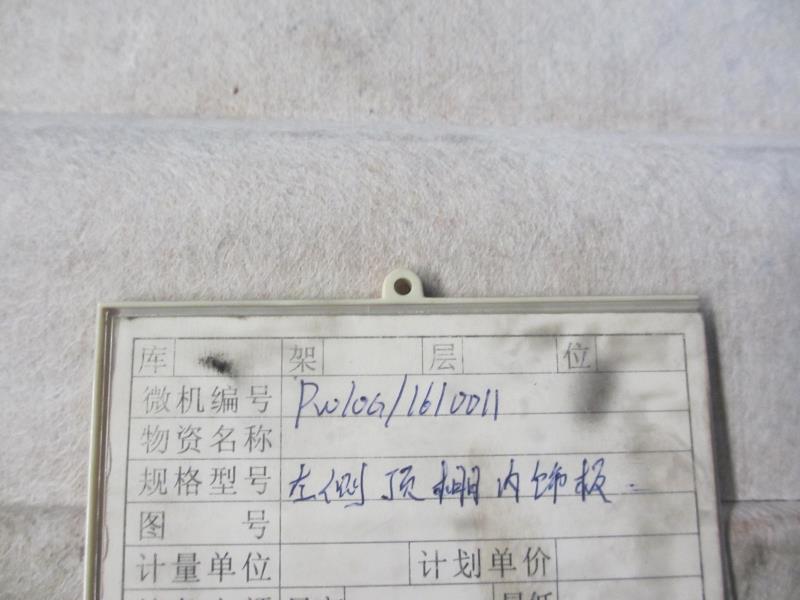 库 架 层 位
微机编号 PW10G/1610011
物资名称
规格型号 左侧顶棚内饰板.
图 号
计量单位 计划单价